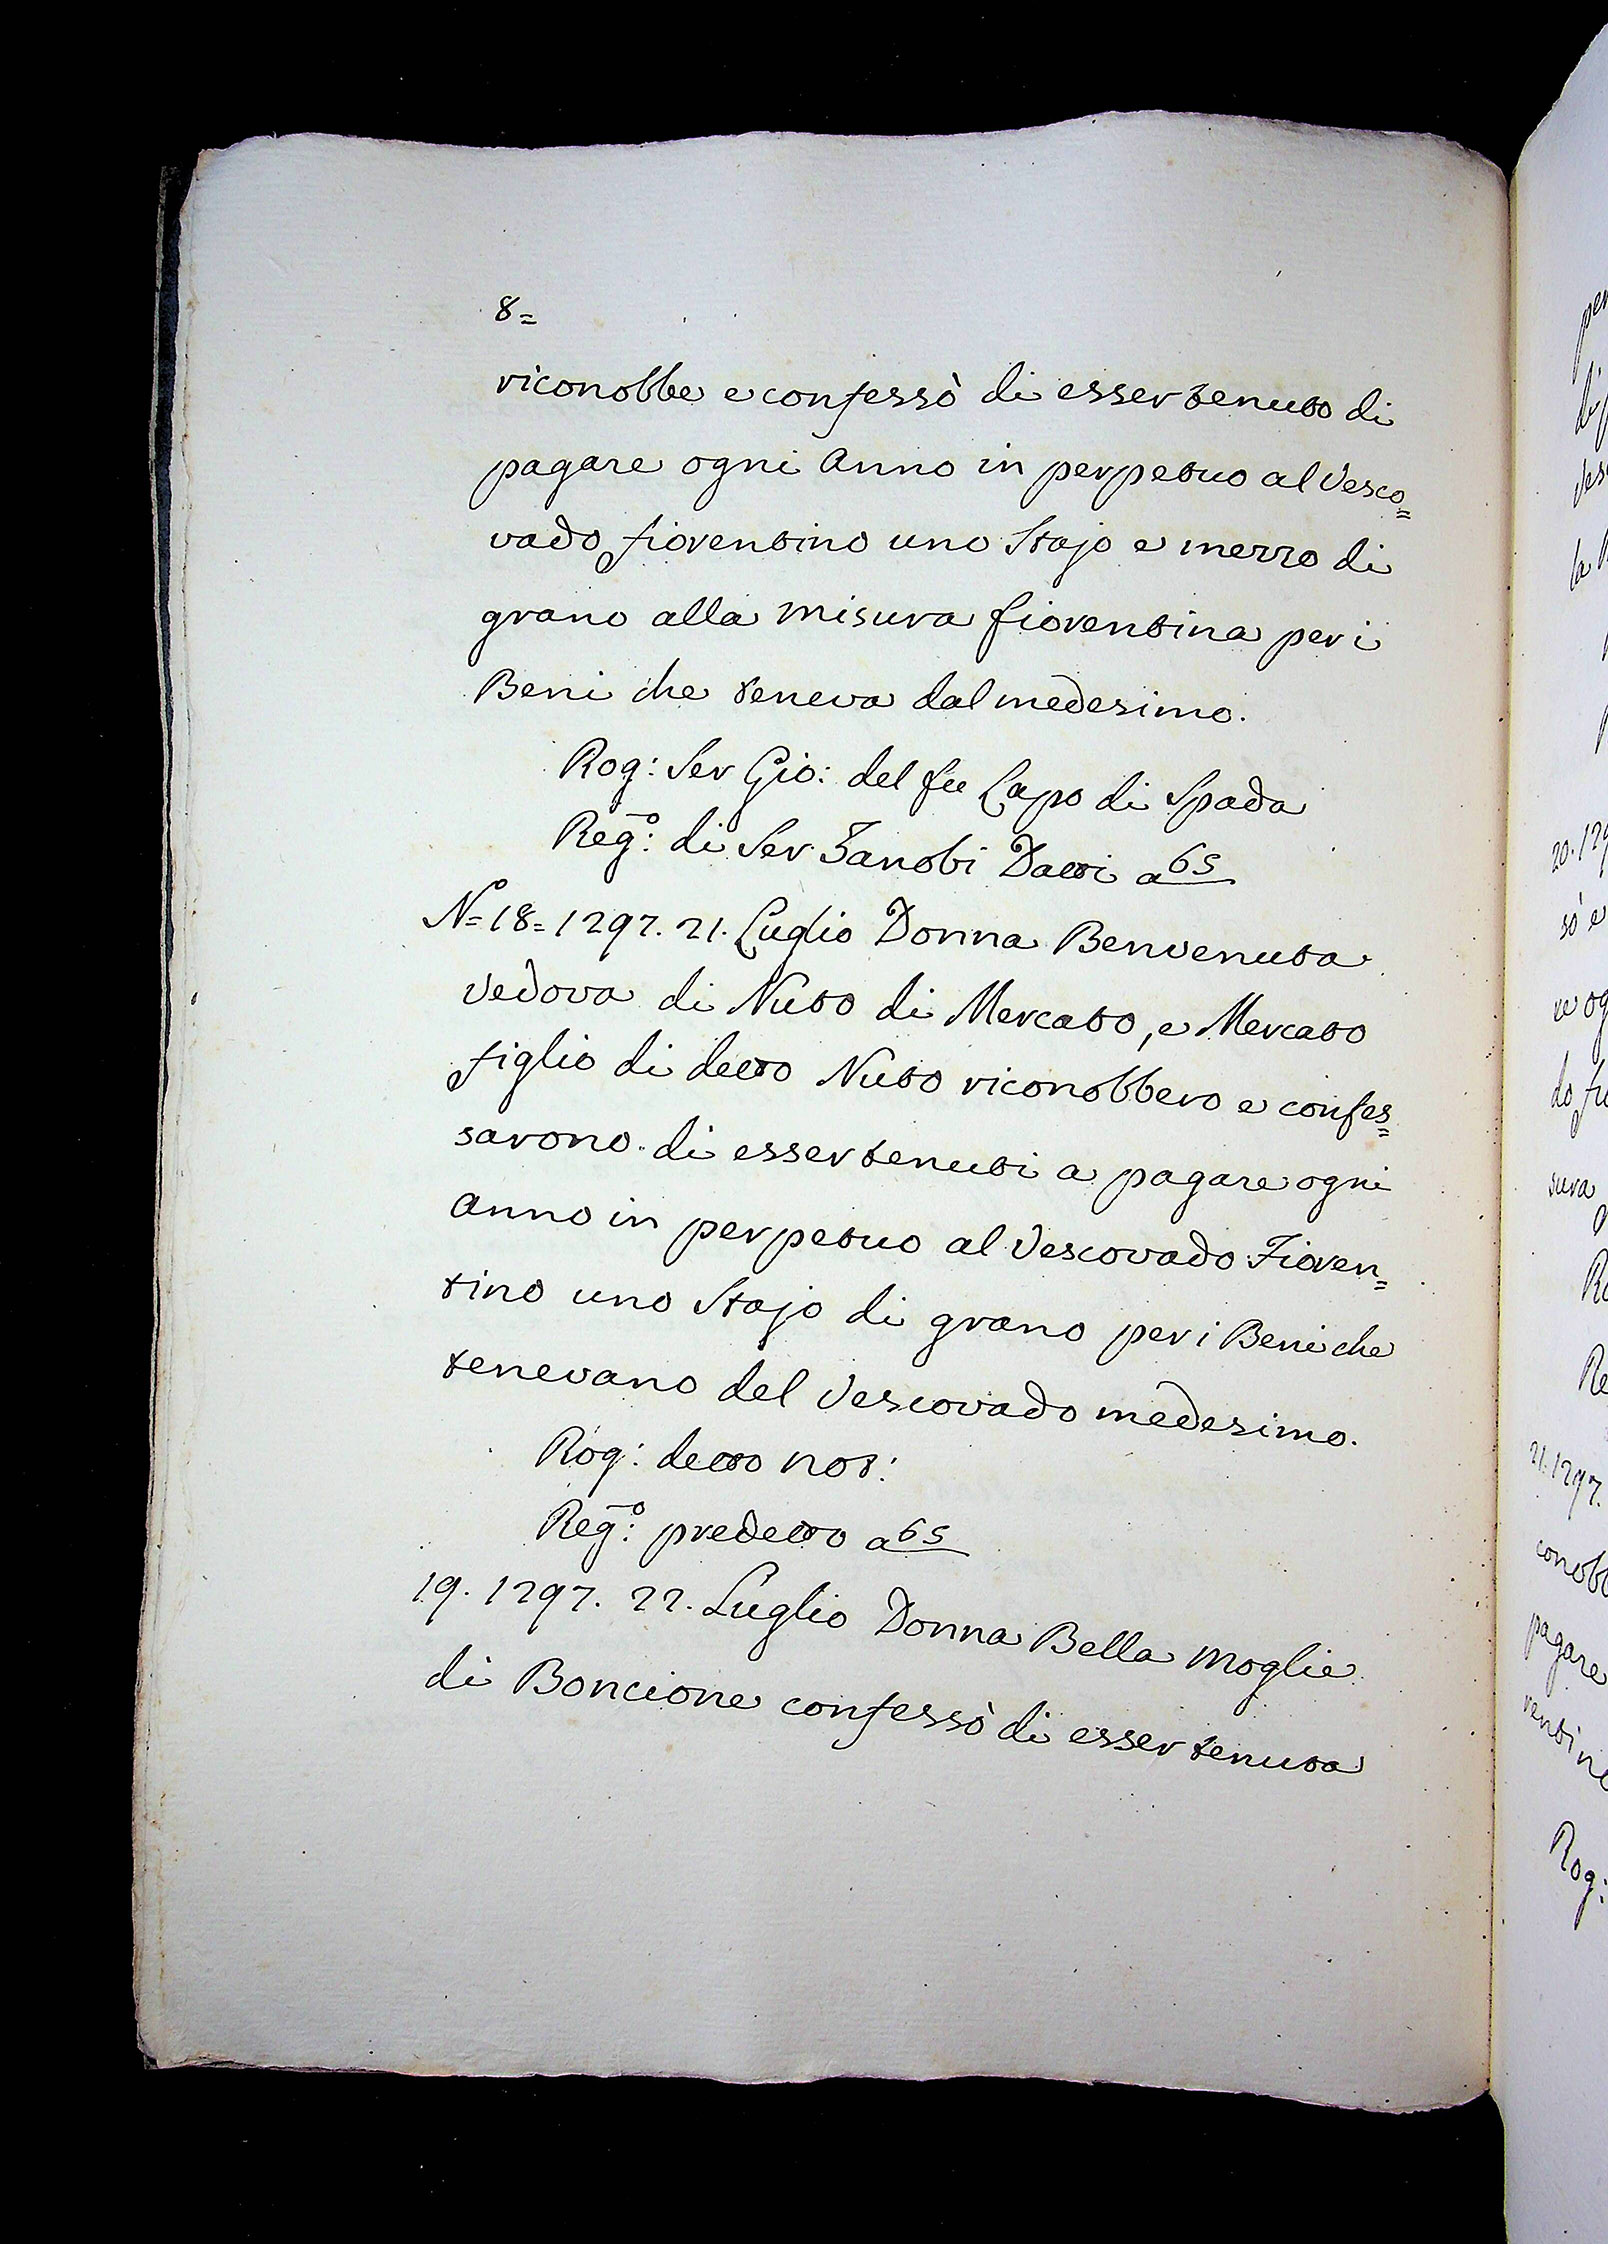 8=
riconobbe e confessò di esser tenuto di
pagare ogni Anno in perpetuo al Vesco=
vado fiorentino uno Stajo e mezzo di
grano alla misura fiorentina per i
Beni che teneva dal medesimo.
Rog: Ser Gio: del fu Lapo di Spada
Reg:o di Ser Zanobi Datti a 65
No= 18= 1297. 21. Luglio Donna Benvenuta
vedova di Nuto di Mercato, e Mercato
figlio di detto Nuto riconobbero e confes=
sarono di esser tenuti a pagare ogni
Anno in perpetuo al Vescovado Fioren=
tino uno Stajo di grano per i Beni che
tenevano del Vescovado medesimo.
Rog: detto not:
Reg:o predetto a 65
19. 1297. 22. Luglio Donna Bella Moglie
di Boncione confessò di esser tenuta
20. 129
21. 1297.
pagare
Rog: